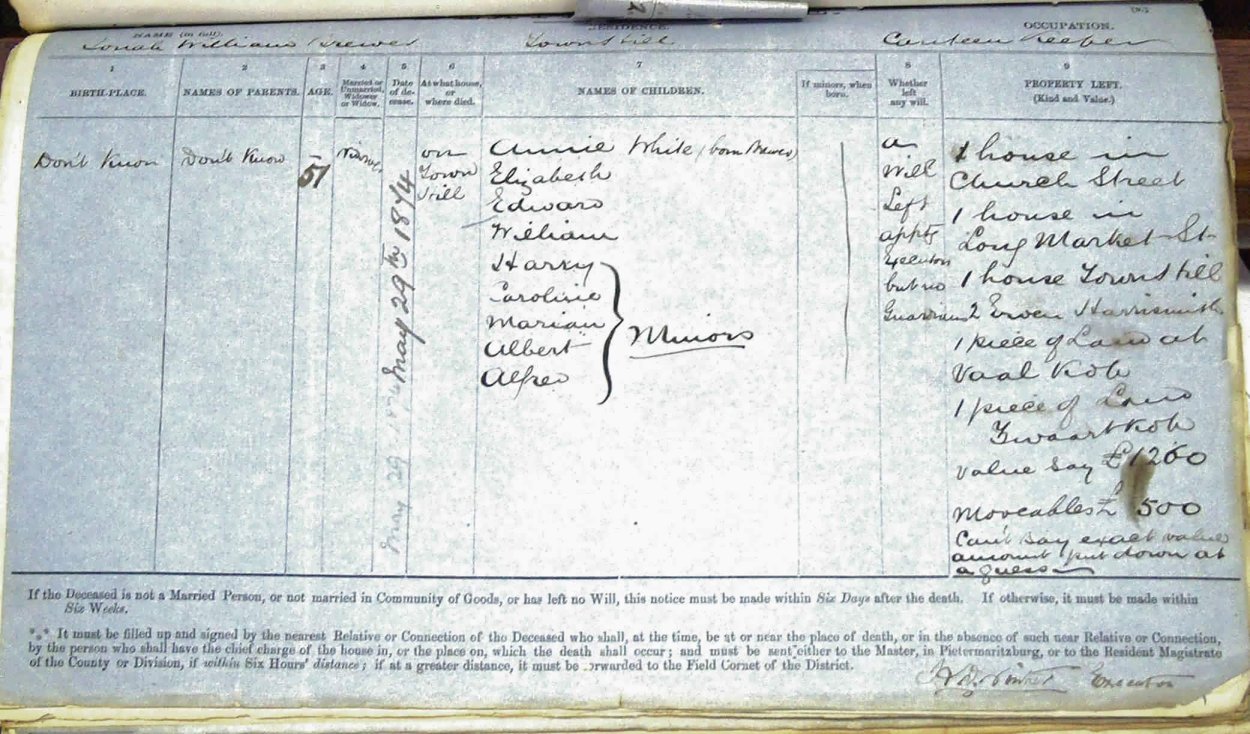 NAME (in full). RESIDENCE. OCCUPATION.
William Brewer Town Hill Canteen Keeper
1 2 3 4 5 6 7 8 9
BIRTH-PLACE. NAMES OF PARENTS. AGE. Married or Unmarried, Widower or Widow. Date of decease. At what house, or where died. NAMES OF CHILDREN. If minors, when born. Whether left any will. PROPERTY LEFT. (Kind and Value.)
Don't Know
Don't Know
51
May 29th 1874
May 29
on
Town
Hill
Annie White (born Brewer)
Elizabeth
Edward
William
Harry
Caroline
Marian
Albert
Alfred
Minors
a
Will
Left
appts
Executors
but no
Guardians
1 house in
Church Street
1 house in
Long Market St
1 house Town Hill
2 Erven Harrismith
1 piece of Land at
Vaal Kop
1 piece of Land
Zwaartkop
value say £1260
Moveables £ 500
Can't say exact value
amount put down at
a guess
If the Deceased is not a Married Person, or not married in Community of Goods, or has left no Will, this notice must be made within Six Days after the death. If otherwise, it must be made within
Six Weeks.
*** It must be filled up and signed by the nearest Relative or Connection of the Deceased who shall, at the time, be at or near the place of death, or in the absence of such near Relative or Connection,
by the person who shall have the chief charge of the house in, or the place on, which the death shall occur; and must be sent either to the Master, in Pietermaritzburg, or to the Resident Magistrate
of the County or Division, if within Six Hours' distance; if at a greater distance, it must be forwarded to the Field Cornet of the District.
Executor